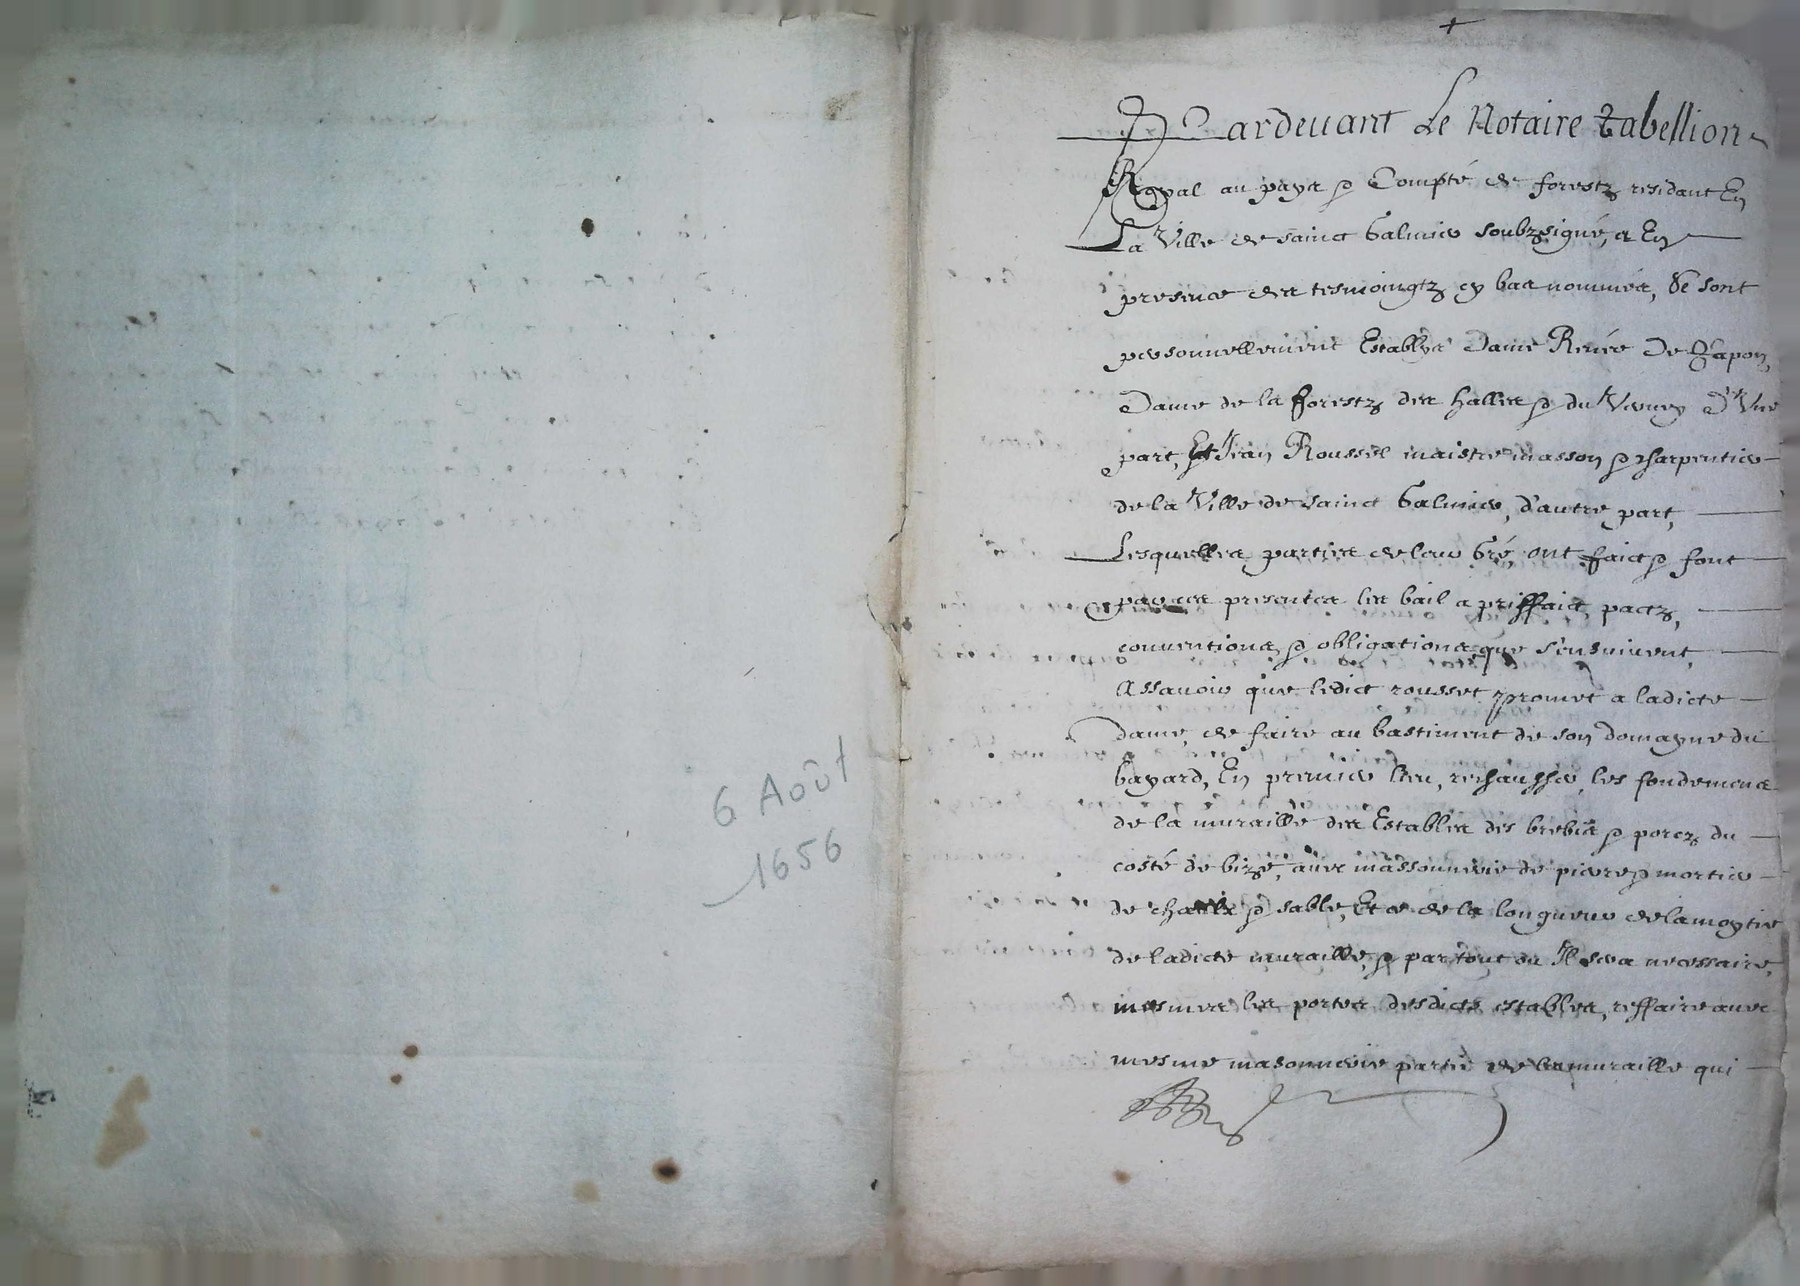 6 Août
1656
Pardeuant Le Notaire Tabellion
Royal au pays & Compté de forestz residant En
La Ville de sainct Galmier soubzsigné, & En
presence des tesmoingtz cy bas nommés, Se sont
personnellement Establys Dame Renée De
Dame de la forestz des halles & du D'Vne
part, Et Jean Roussel maistre masson & charpentier
de la Ville de sainct Galmier, d'autre part,
Lesquelles parties de leur Gré, ont faict & font
par ces presentes les bail a priffaict, pactz,
conuentions & obligations que s'ensuiuent,
Assauoir que ledict rousset promet a ladicte
dame, de faire au bastiment de son domayne du
bayard, En premier lieu, rechausser, les fondemens
de la muraille des Estables des brebis & porcz du
costé de bize, auec massonnerie de pierre & mortier
de chaulx & sable, Et ce de la longueur de la moytie
de ladicte muraille, & partout ou Il sera necessaire,
mesmes les portes desdictes estables, reffaire auec
mesme masonnerie partie de la muraille qui